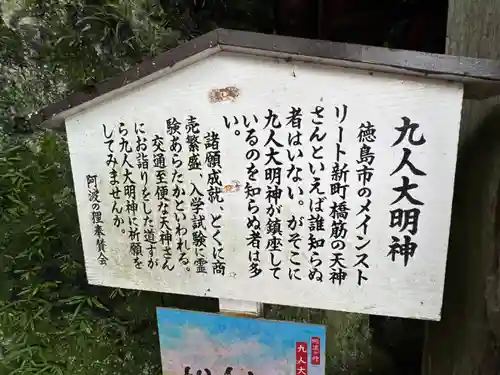 九人大明神
徳島市のメインスト
リート新町橋筋の天神
さんといえば誰知らぬ
者はいない。がそこに
九人大明神が鎮座して
いるのを知らぬ者は多
い。
諸願成就、とくに商
売繁盛、入学試験に霊
験あらたかといわれる。
交通至便な天神さん
にお詣りをした道すが
ら九人大明神に祈願を
してみませんか。
阿波の狸奉賛会
九人大